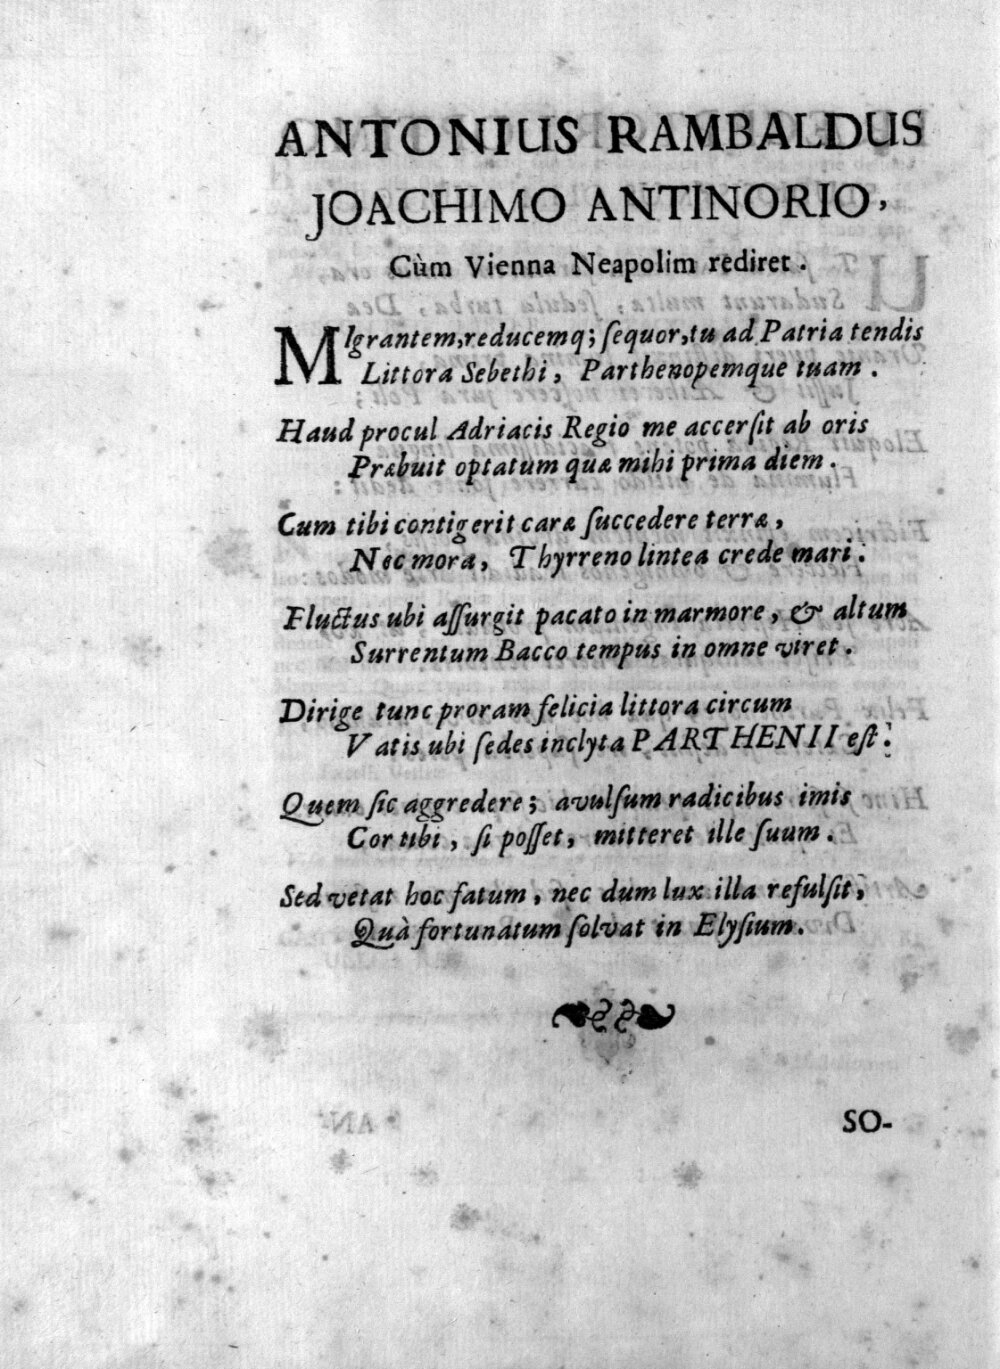 ANTONIUS RAMBALDUS
JOACHIMO ANTINORIO,
Cùm Vienna Neapolim rediret.
MIgrantem, reducemq; ſequor, tu ad Patria tendis
Littora Sebethi, Parthenopemque tuam.
Haud procul Adriacis Regio me accerſit ab oris
Præbuit optatum quæ mihi prima diem.
Cum tibi contigerit caræ ſuccedere terræ,
Nec mora, Thyrreno lintea crede mari.
Fluctus ubi aſſurgit pacato in marmore, & altum
Surrentum Bacco tempus in omne viret.
Dirige tunc proram felicia littora circum
Vatis ubi ſedes inclyta PARTHENII eſt.
Quem ſic aggredere; avulſum radicibus imis
Cor tibi, ſi poſſet, mitteret ille ſuum.
Sed vetat hoc fatum, nec dum lux illa refulſit,
Quà fortunatum ſolvat in Elyſium.
SO-